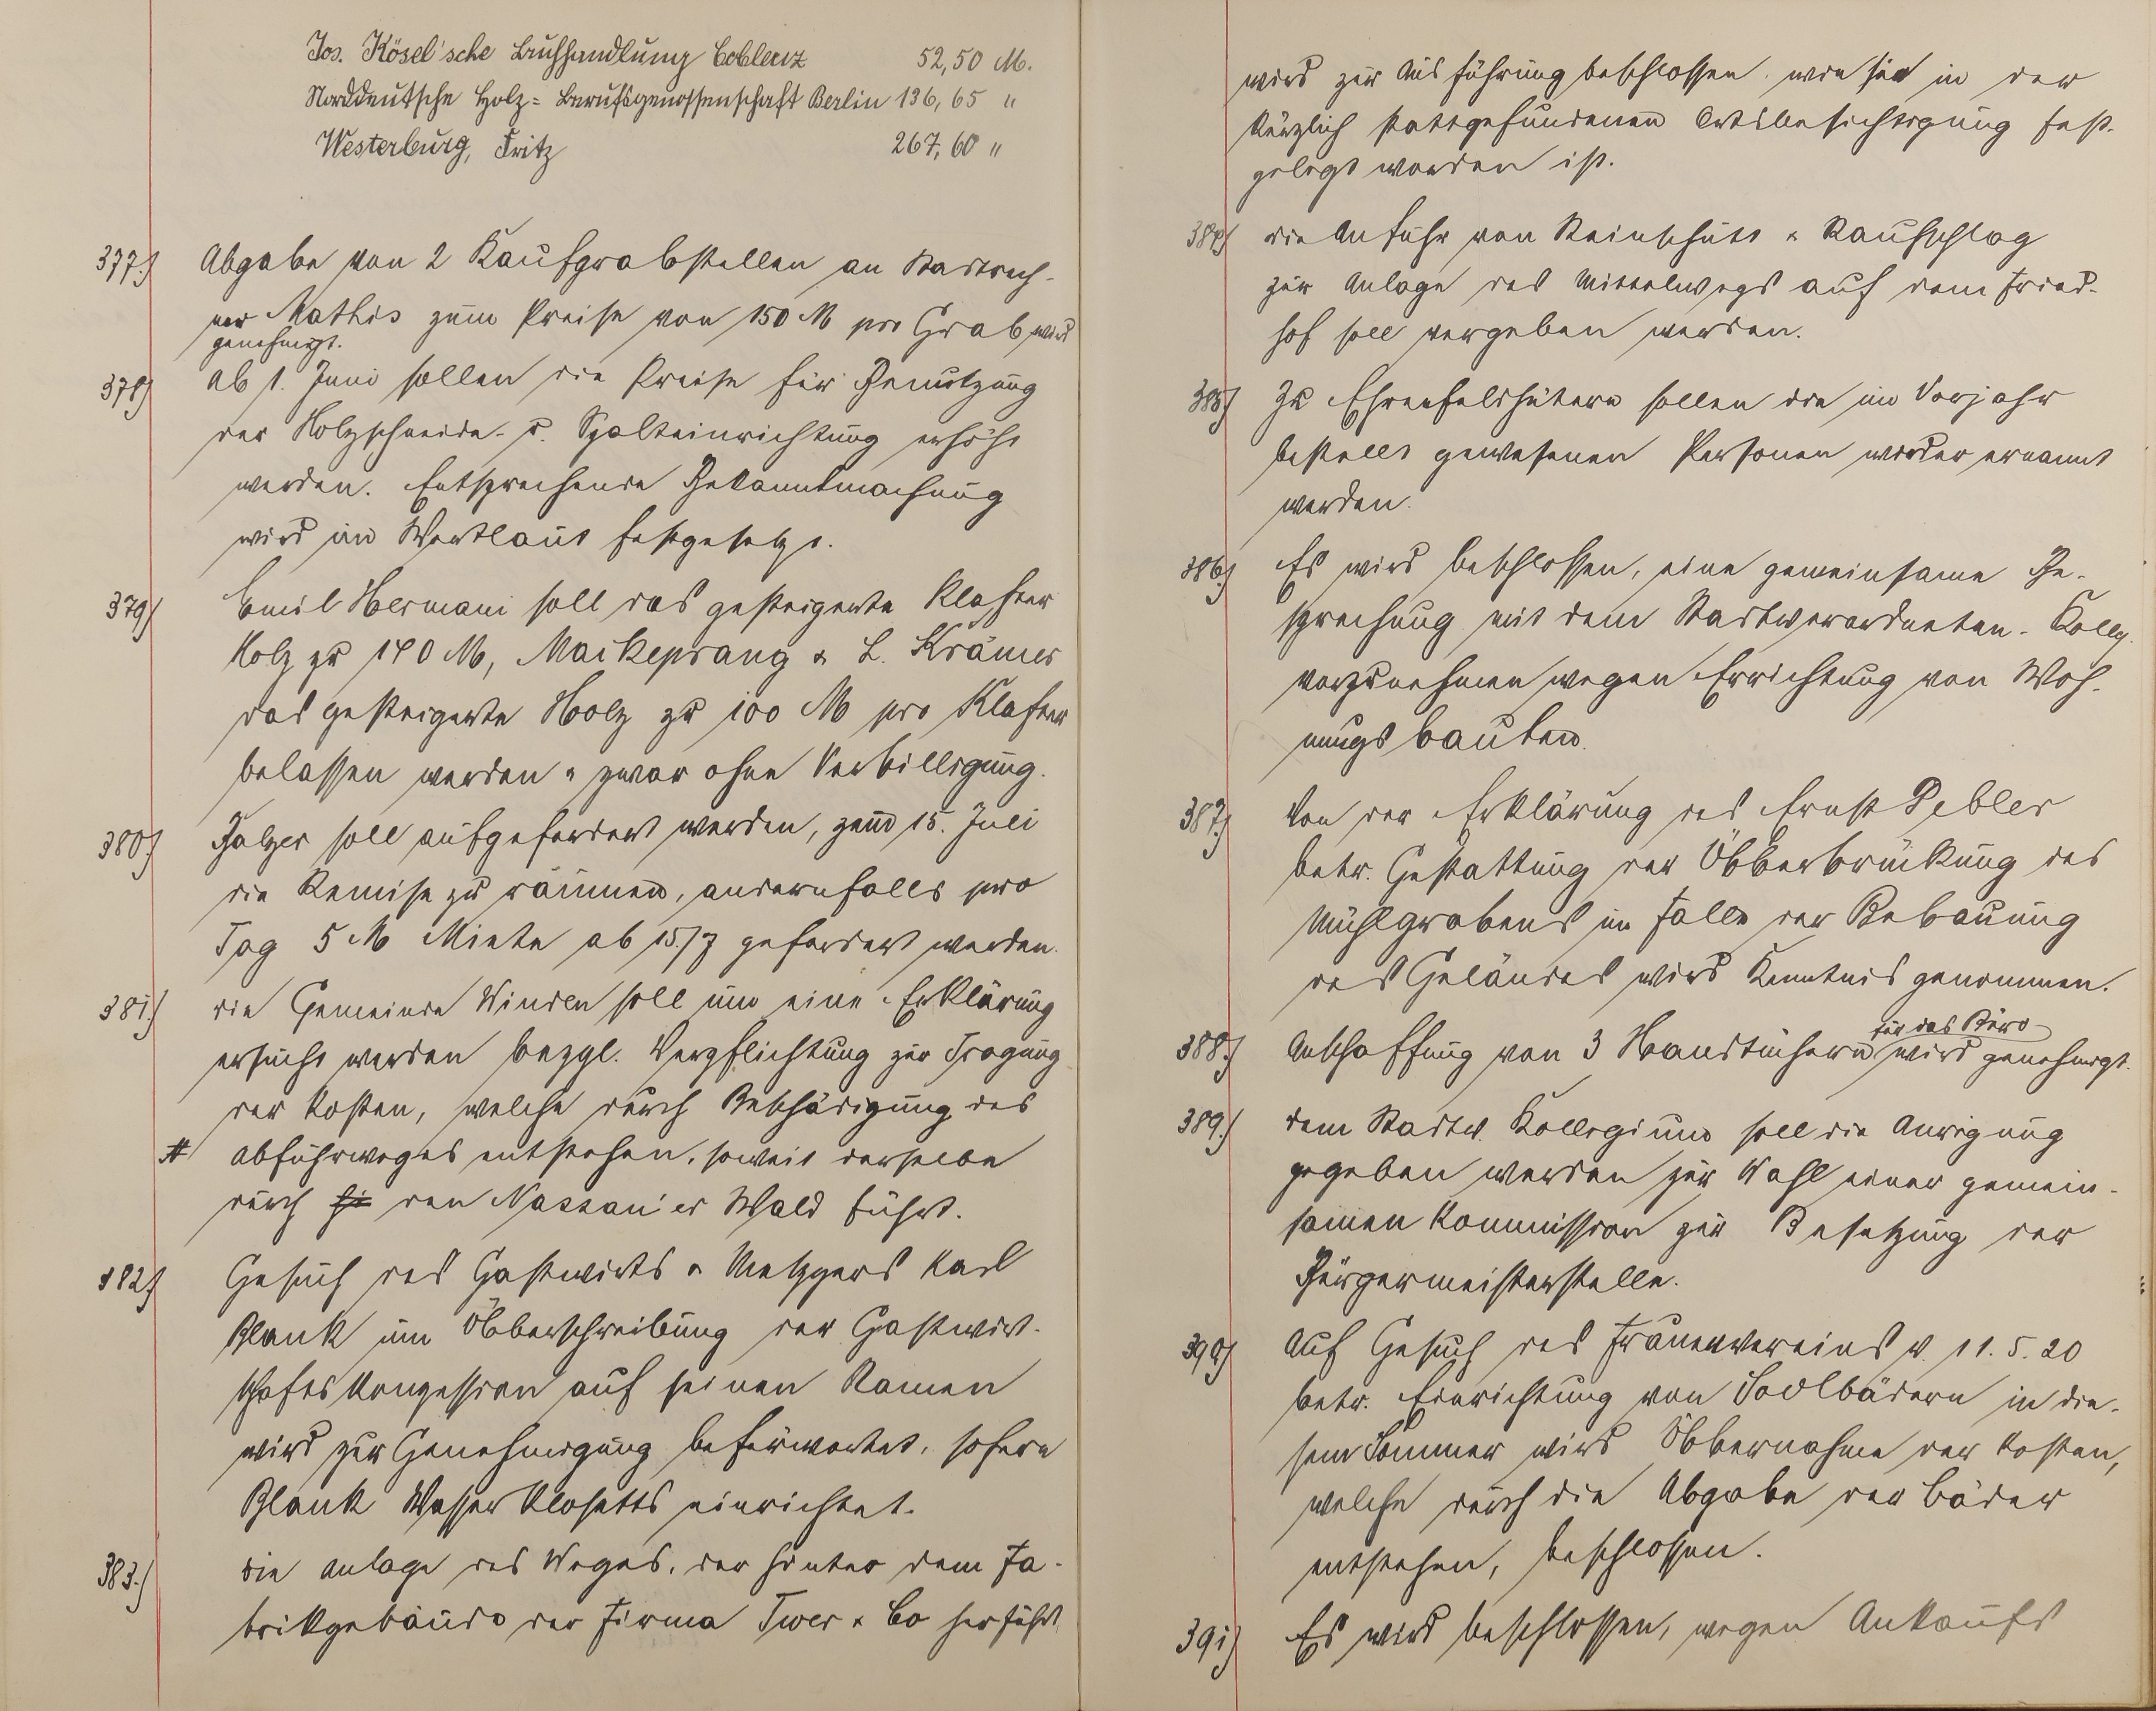 Jos. Kösel'sche Buchhandlung Coblenz 52,50 M.
Norddeutsche Holz= Berufsgenossenschaft Berlin 136,65 "
Westerburg, Fritz 267,60 "
377.) Abgabe von 2 Kaufgrabstellen an Stadtrech-
ner Mathis zum Preise von 150 M pro Grab wird
genehmigt.
378) Ab 1. Juni sollen die Preise für Benutzung
der Holzschneide- u. Spalteinrichtung erhöht
werden. Entsprechende Bekanntmachung
wird im Wortlaut festgesetzt.
379) Emil Hermani soll das gesteigerte Klafter
Holz zu 140 M, Mackeprang & L. Krämer
das gesteigerte Holz zu 100 M pro Klafter
belassen werden & zwar ohne Verbilligung.
380.) Balzer soll aufgefordert werden, zum 15. Juli
die Remise zu räumen, andernfalls pro
Tag 5 M Miete ab 15./7 gefordert werden.
381.) Die Gemeinde Winden soll um eine Erklärung
ersucht werden bezgl. Verpflichtung zur Tragung
der Kosten, welche durch Beschädigung des
# Abfuhrweges entstehen, soweit derselbe
durch den Nassau'er Wald führt.
382.) Gesuch des Gastwirts & Metzgers Karl
Blank um Überschreibung der Gastwirt-
schaftskonzession auf seinen Namen
wird zur Genehmigung befürwortet, sofern
Blank Wasser Klosetts einrichtet.
383.) Die Anlage des Weges, der hinter dem Fa-
brikgebäude der Firma Twer & Co herführt,
wird zur Ausführung beschlossen, wie sie in der
kürzlich stattgefundenen Ortsbesichtigung fest-
gelegt worden ist.
384) Die Anfuhr von Steinschutt & Rauhschlag
zur Anlage des Mittelwegs auf dem Fried-
hof soll vergeben werden.
385) Zu Ehrenfeldhütern sollen die im Vorjahr
bestellt gewesenen Personen wieder ernannt
werden.
386.) Es wird beschlossen, eine gemeinsame Be-
sprechung mit dem Stadtverordneten-Kolleg.
vorzunehmen wegen Errichtung von Woh-
nungsbauten.
387.) Von der Erklärung des Ernst Debler
betr. Gestattung der Überbrückung des
Mühlgrabens im Falle der Bebauung
des Geländes wird Kenntnis genommen.
388.) Anschaffung von 3 Handtüchern für das Büro wird genehmigt.
389.) Dem Stadtv. Kollegium soll die Anregung
gegeben werden zur Wahl einer gemein-
samen Kommission zur Besetzung der
Bürgermeisterstelle.
390) Auf Gesuch des Frauenvereins v. 11.5.20
betr. Einrichtung von Soolbädern in die-
sem Sommer wird Übernahme der Kosten,
welche durch die Abgabe der Bäder
entstehen, beschlossen.
391) Es wird beschlossen, wegen Ankaufs